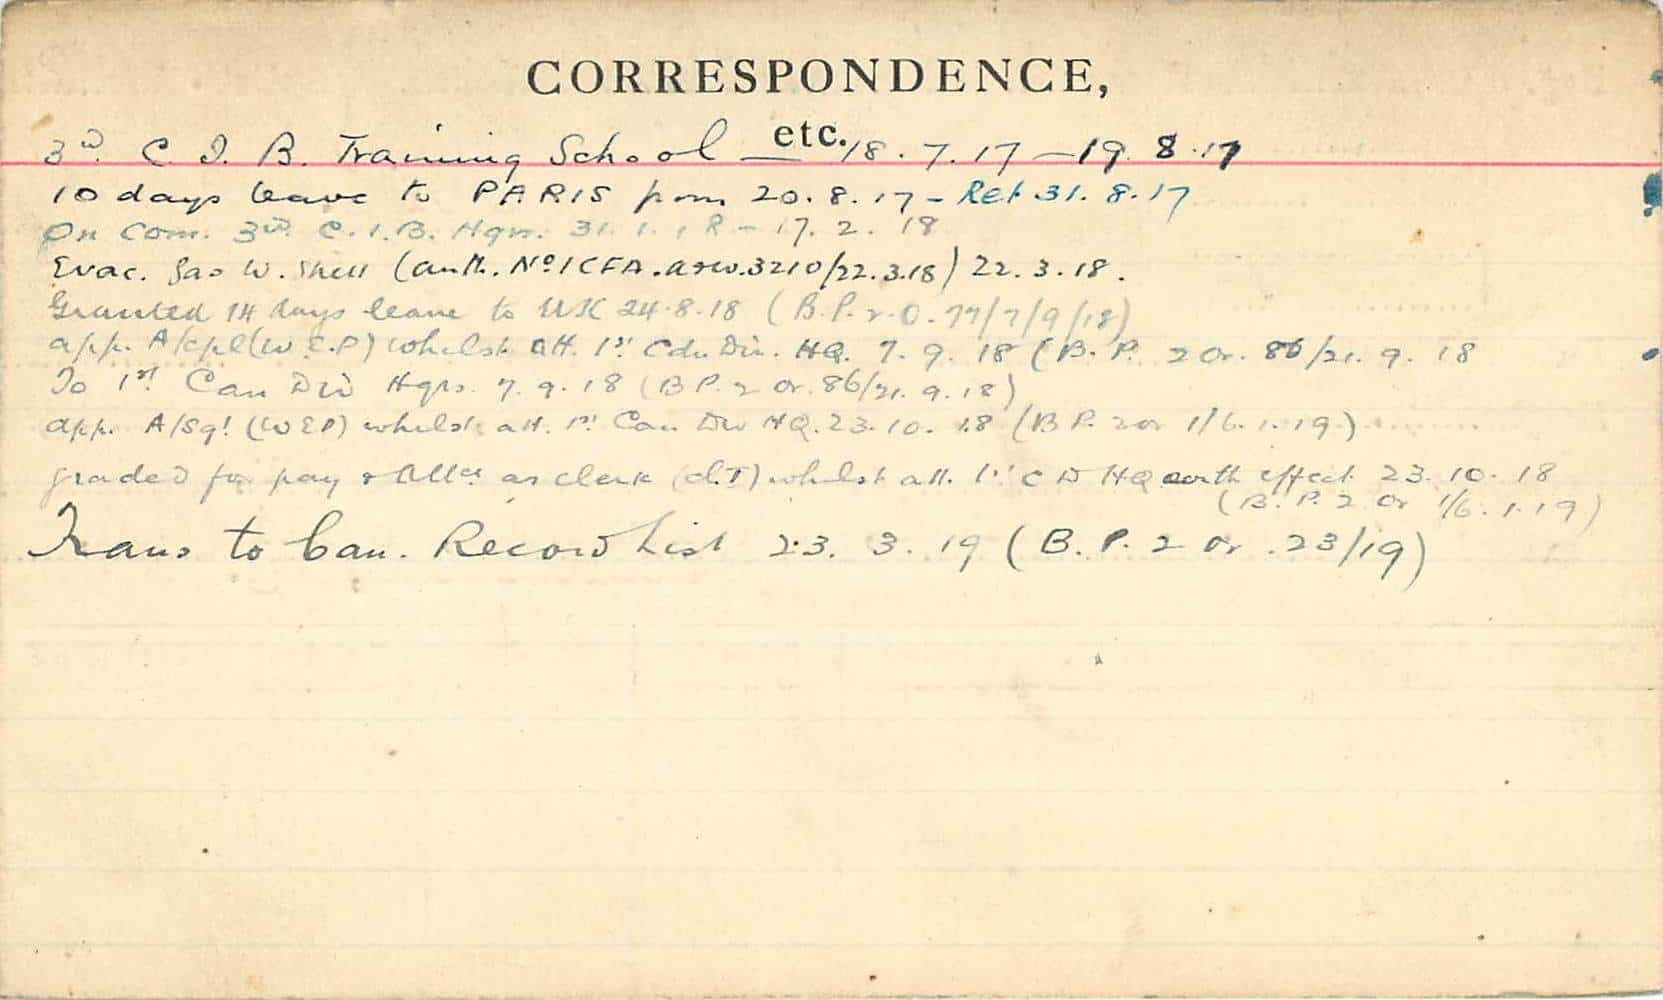 CORRESPONDENCE,
etc.
3rd. C. I. B. Training School — 18.7.17 — 19.8.17
10 days leave to PARIS from 20.8.17 - Ret 31.8.17
On Com. 3rd. C.I.B. Hqrs. 31.1.18 - 17.2.18
Evac. Gas W. Shell (auth. No 1 CFA. 3210/22.3.18) 22.3.18.
Granted 14 days leave to UK 24.8.18 (B.P. 2.O. 77/7/9/18)
app. A/Cpl (W.E.P) whilst att. 1st Cdn Div. HQ. 7.9.18 (B.P. 2 Or. 86/21.9.18
To 1st Can Div Hqrs. 7.9.18 (B P. 2 Or. 86/21.9.18)
app. A/Sgt (W E P) whilst att. 1st Can Div HQ. 23.10.18 (B P. 2 or 1/6.1.19)
graded for pay & Allces as clerk (cl. I) whilst att. 1st C D HQ with effect 23.10.18
(B.P. 2 Or 1/6.1.19)
Trans to Can. Record List 23.3.19 (B.P. 2 Or. 23/19)